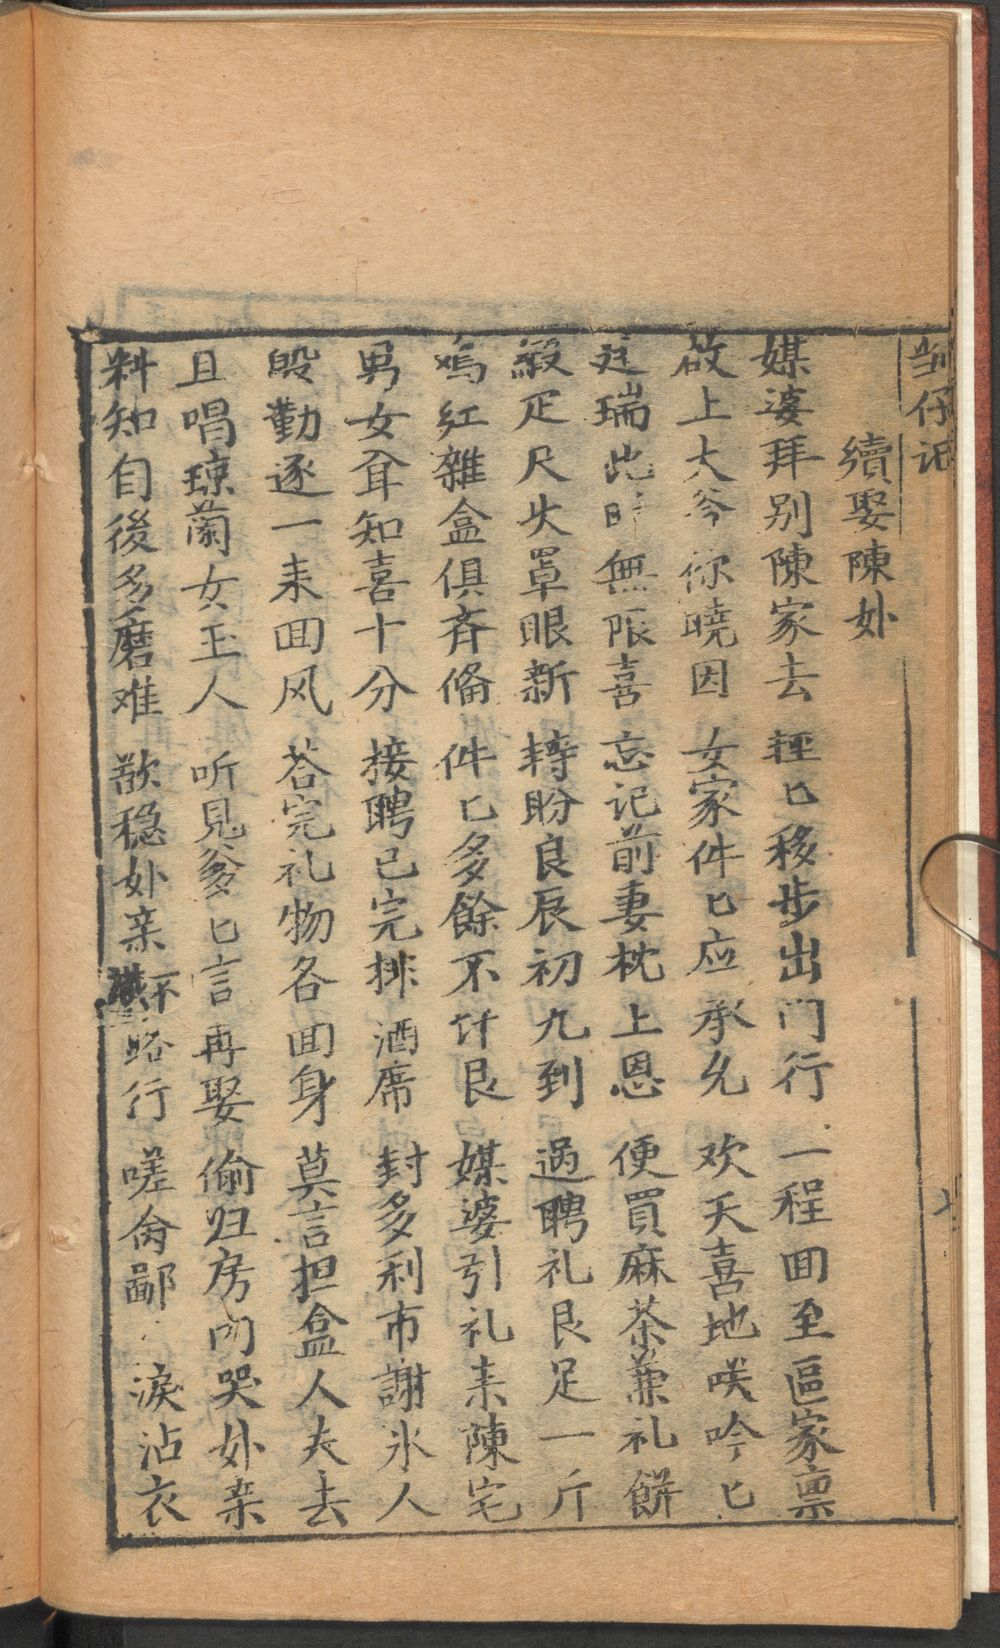 刣仔记
續娶陳妚
媒婆拜别陳家去 輕匕移步出门行 一程囬至區家禀
啟上大爷你曉因 女家件匕应承允 欢天喜地咲吟匕
廷瑞此時無限喜 忘记前妻枕上恩 便買麻茶兼礼餅
緞疋尺头罩眼新 轉盼良辰初九到 過聘礼艮足一斤
鸡红雜盒俱斉俻 件匕多餘不计艮 媒婆引礼耒陳宅
男女聞知喜十分 接聘已完排酒席 封多利市謝氷人
殷勤逐一耒囬风 荅完礼物各囬身 莫言担盒人夫去
且唱琼蘭女玉人 听見爹匕言再娶 偷归房内哭妚亲
料知自後多磨难 歆稳妚亲不路行 嗟禽鄙 淚沾衣